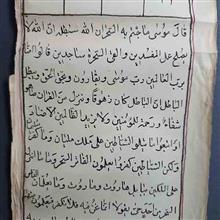 قال موسى ما جئتم به السحر ان الله سيبطله ان الله لا
يصلح عمل المفسدين والقى السحرة ساجدين قالوا امنا
برب العالمين رب موسى وهارون وجاء الحق وزهق
الباطل ان الباطل كان زهوقا وننزل من القران ما
شفاء ورحمة للمؤمنين ولا يزيد الظالمين الا خسارا
واتبعوا ما تتلوا الشياطين على ملك سليمان وما
ولكن الشياطين كفروا يعلمون الناس السحر وما انزل
على الملكين ببابل هاروت وماروت وما يعلمان
من احد حتى يقولا انما نحن فتنة فلا تكفر